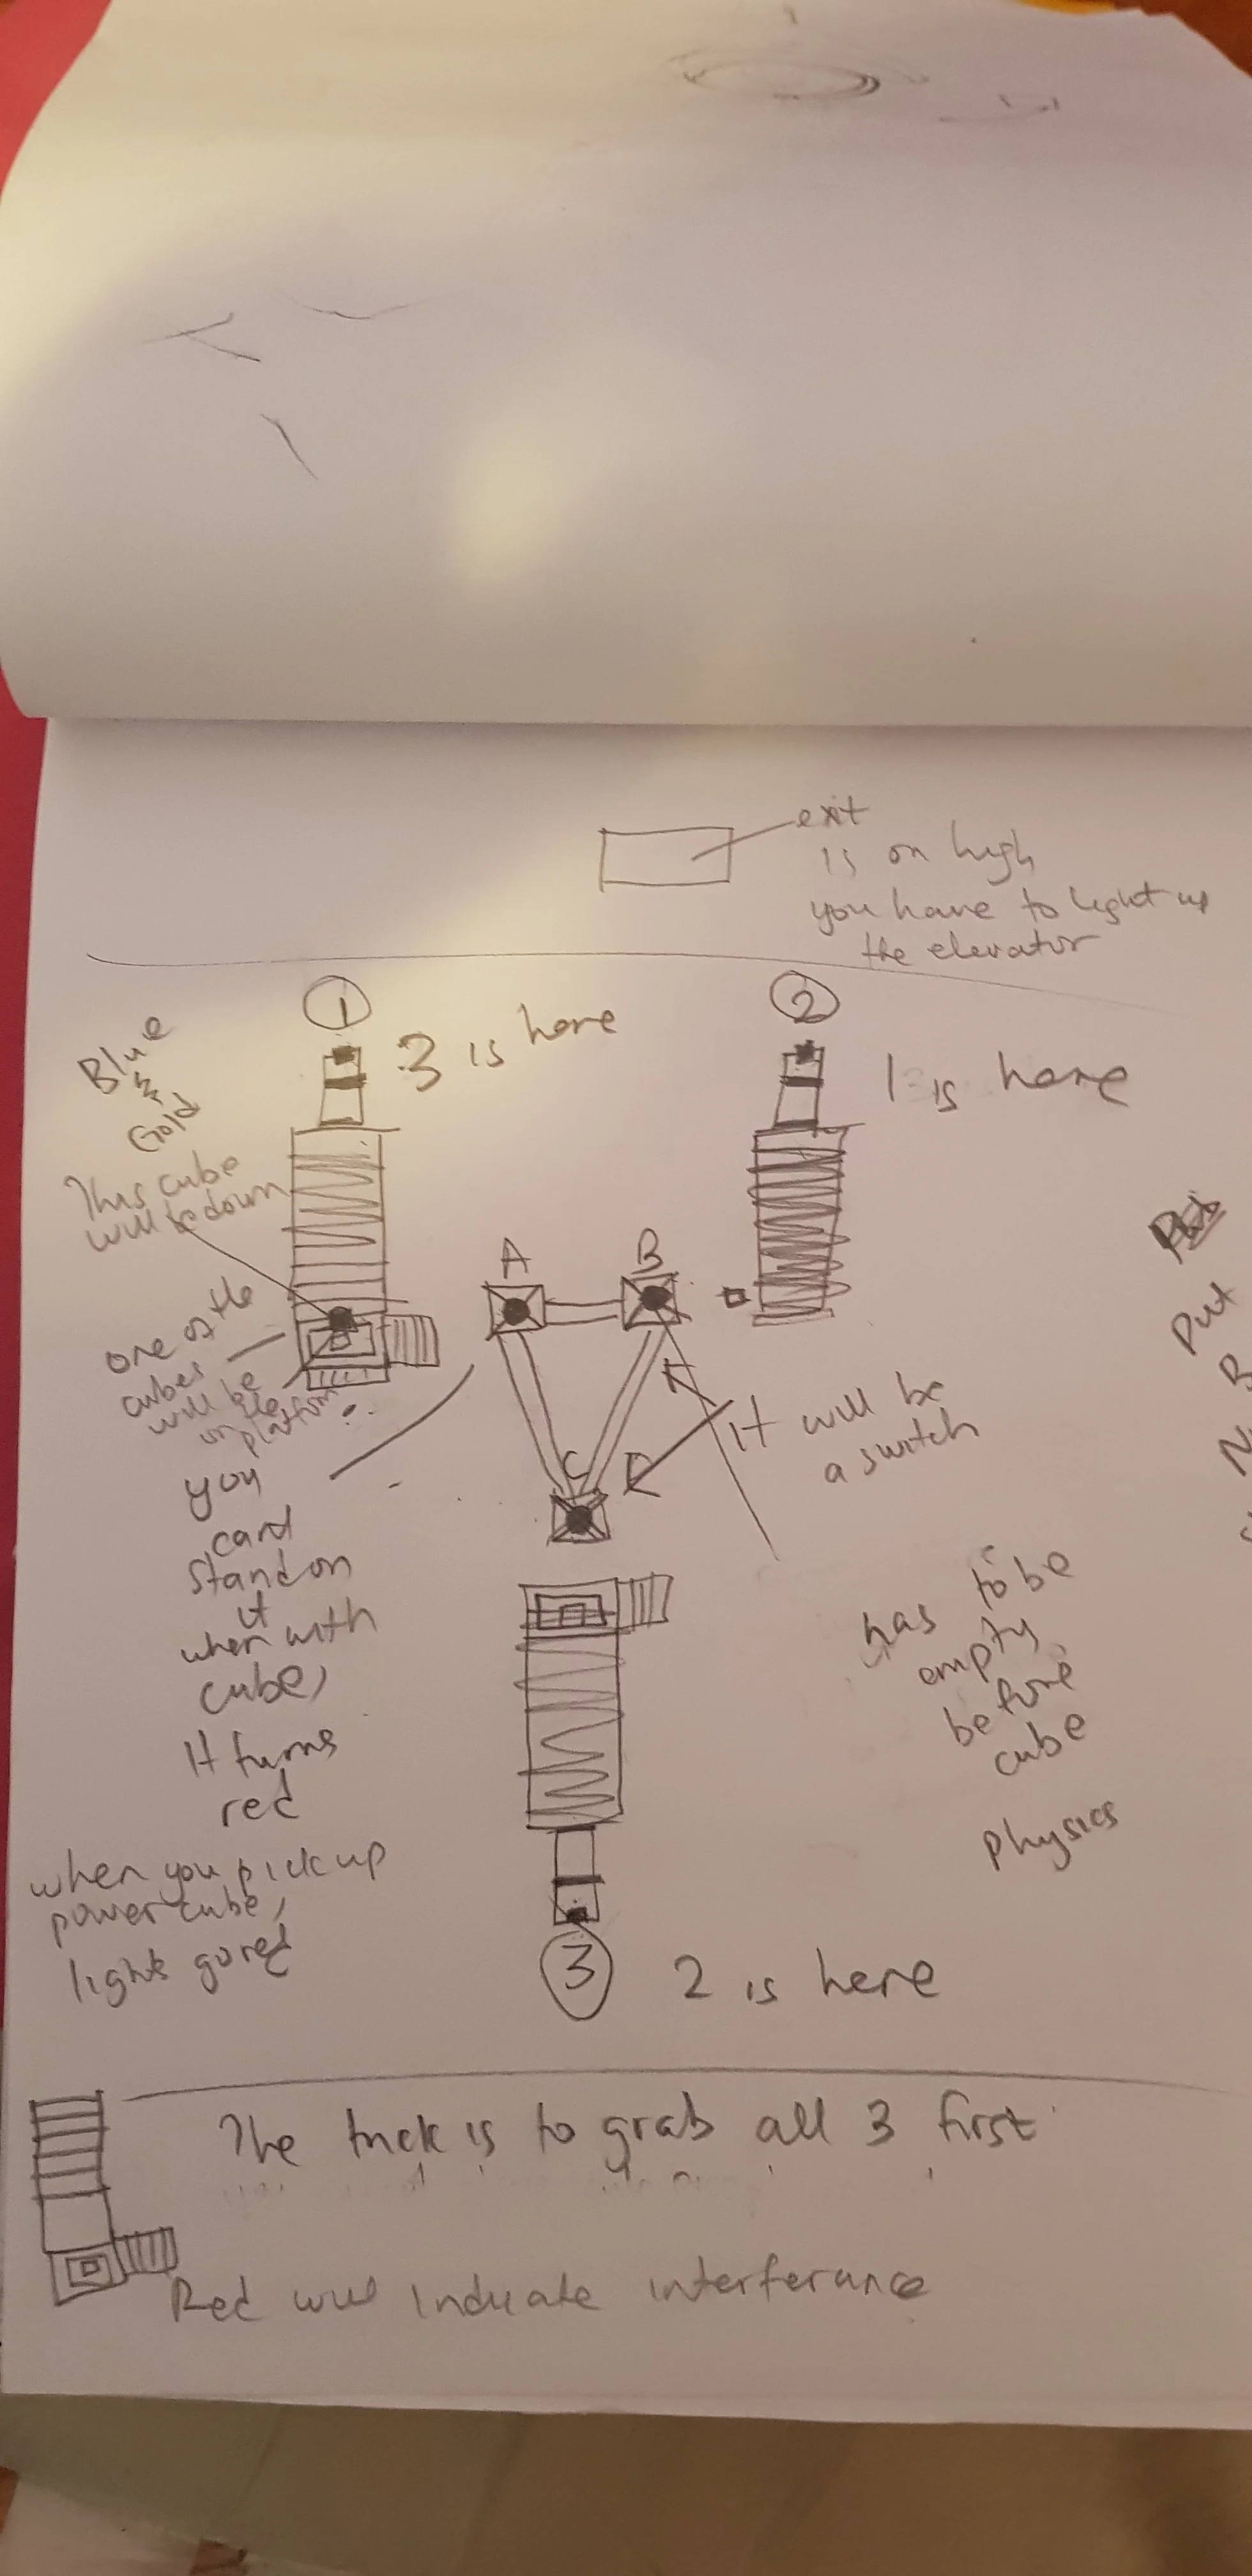 exit
is on high
you have to light up
the elevator
1
3 is here
2
1 is here
Blue
&
Gold
This cube
will be down
one of the
cubes
will be
on the
platform
A
B
C
It will be
a switch
you
cant
stand on
it
when with
cube,
It turns
red
when you pick up
power cube,
lights go red
has to be
empty
before
cube
physics
Put
3
2 is here
The trick is to grab all 3 first
Red will indicate interferance